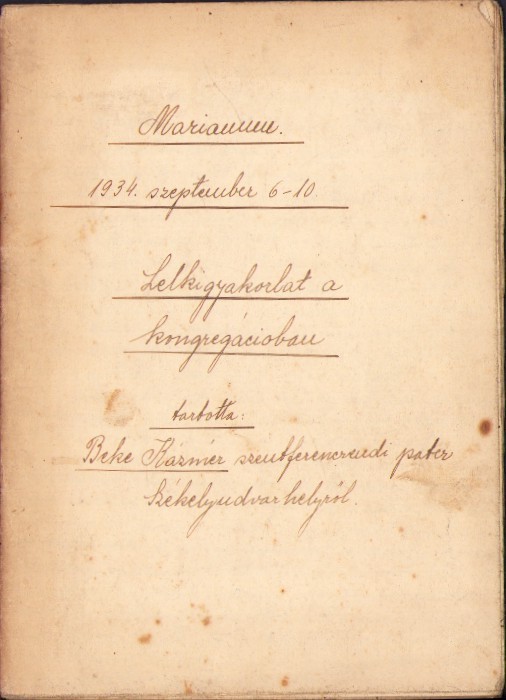 Marianum.
1934. szeptember 6-10.
Lelkigyakorlat a
kongregációban
tartotta:
Beke Kázmér szentferencrendi páter
Székelyudvarhelyről.